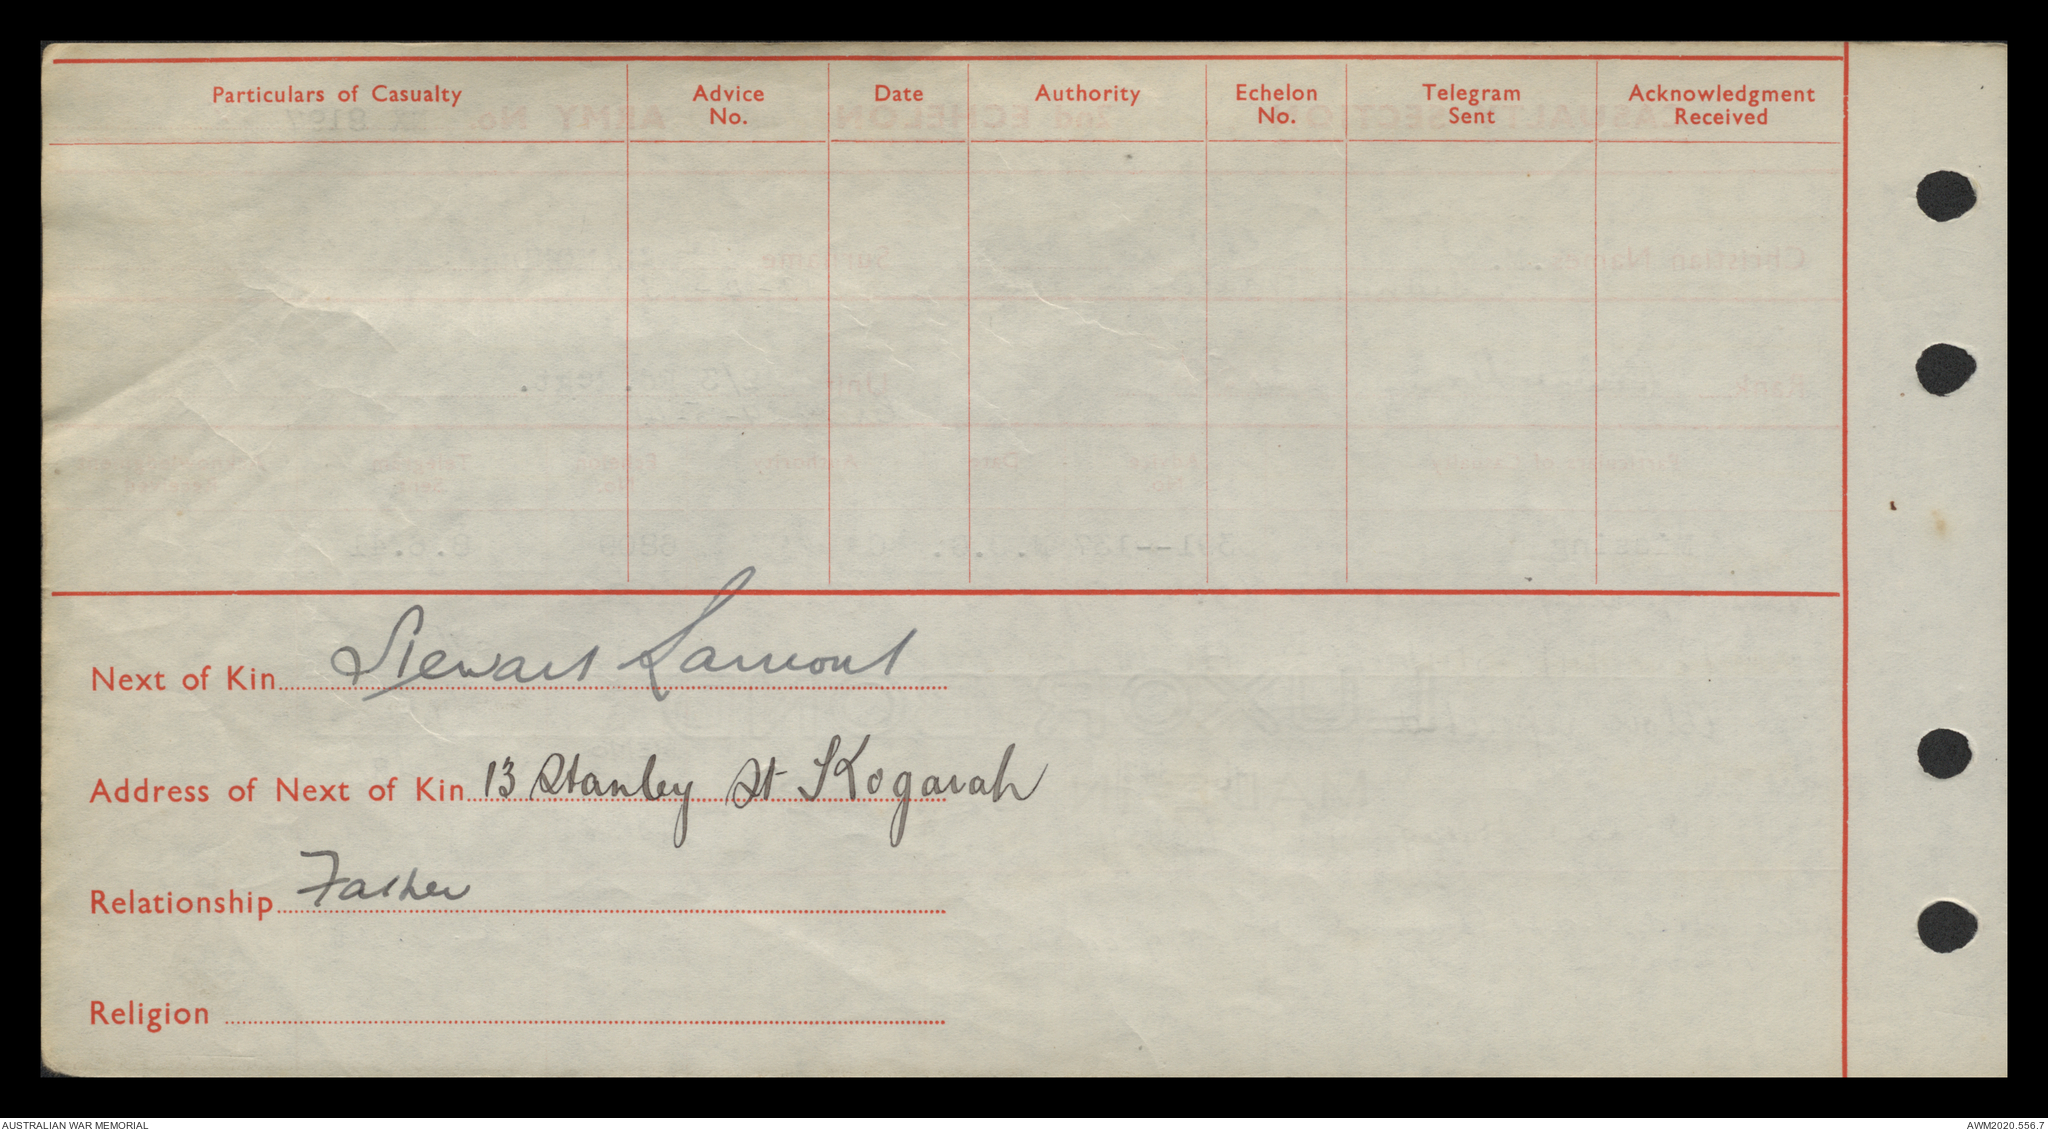 Particulars of Casualty Advice No. Date Authority Echelon No. Telegram Sent Acknowledgment Received
Next of Kin Stewart Lamont
Address of Next of Kin 13 Stanley St Kogarah
Relationship Father
Religion
AUSTRALIAN WAR MEMORIAL AWM2020.556.7